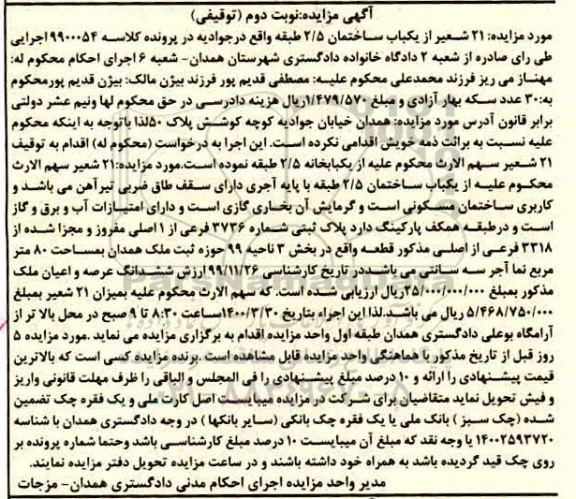 آگهی مزایده:نوبت دوم (توقیفی)
مورد مزایده: ۲۱ شعیر از یکباب ساختمان ۲/۵ طبقه واقع درجوادیه در پرونده کلاسه ۹۹۰۰۰۵۴ اجرایی
طی رای صادره از شعبه ۲ دادگاه خانواده دادگستری شهرستان همدان- شعبه ۶ اجرای احکام محکوم له:
مهناز می ریز فرزند محمدعلی محکوم علیه: مصطفی قدیم پور فرزند بیژن مالک: بیژن قدیم پورمحکوم
به:۳۰ عدد سکه بهار آزادی و مبلغ ۱/۴۷۹/۵۷۰ریال هزینه دادرسی در حق محکوم لها ونیم عشر دولتی
برابر قانون آدرس مورد مزایده: همدان خیابان جوادیه کوچه کوشش پلاک ۵۰لذا باتوجه به اینکه محکوم
علیه نسبت به برائت ذمه خویش اقدامی نکرده است. این اجرا به درخواست (محکوم له) اقدام به توقیف
۲۱ شعیر سهم الارث محکوم علیه از یکبابخانه ۲/۵ طبقه نموده است.مورد مزایده:۲۱ شعیر سهم الارث
محکوم علیه از یکباب ساختمان ۲/۵ طبقه با پایه آجری دارای سقف طاق ضربی تیرآهن می باشد و
کاربری ساختمان مسکونی است و گرمایش آن بخاری گازی است و دارای امتیازات آب و برق و گاز
است و درطبقه همکف پارکینگ دارد پلاک ثبتی شماره ۳۷۳۶ فرعی از ۱ اصلی مفروز و مجزا شده از
۳۳۱۸ فرعی از اصلی مذکور قطعه واقع در بخش ۳ ناحیه ۹۹ حوزه ثبت ملک همدان بمساحت ۸۰ متر
مربع نما آجر سه سانتی می باشددر تاریخ کارشناسی ۹۹/۱۱/۲۶ ارزش ششدانگ عرصه و اعیان ملک
مذکور بمبلغ ۲۵/۰۰۰/۰۰۰/۰۰۰ریال ارزیابی شده است. که سهم الارث محکوم علیه بمیزان ۲۱ شعیر بمبلغ
۵/۴۶۸/۷۵۰/۰۰۰ ریال می باشد.لذا این اجراء بتاریخ ۱۴۰۰/۳/۳۰ساعت ۸:۳۰ تا ۹ صبح در محل بالا تر از
آرامگاه بوعلی دادگستری همدان طبقه اول واحد مزایده اقدام به برگزاری مزایده می نماید .مورد مزایده ۵
روز قبل از تاریخ مذکور با هماهنگی واحد مزایده قابل مشاهده است .برنده مزایده کسی است که بالاترین
قیمت پیشنهادی را ارائه و ۱۰ درصد مبلغ پیشنهادی را فی المجلس و الباقی را ظرف مهلت قانونی واریز
و فیش تحویل نماید متقاضیان برای شرکت در مزایده میبایست اصل کارت ملی و یک فقره چک تضمین
شده (چک سبز ) بانک ملی یا یک فقره چک بانکی (سایر بانکها ) در وجه دادگستری همدان با شناسه
۱۴۰۰۲۵۹۳۷۲۰ یا وجه نقد که مبلغ آن میبایست ۱۰ درصد مبلغ کارشناسی باشد وحتما شماره پرونده بر
روی چک قید گردیده باشد به همراه خود داشته باشند و در ساعت مزایده تحویل دفتر مزایده نمایند.
مدیر واحد مزایده اجرای احکام مدنی دادگستری همدان- مزجات